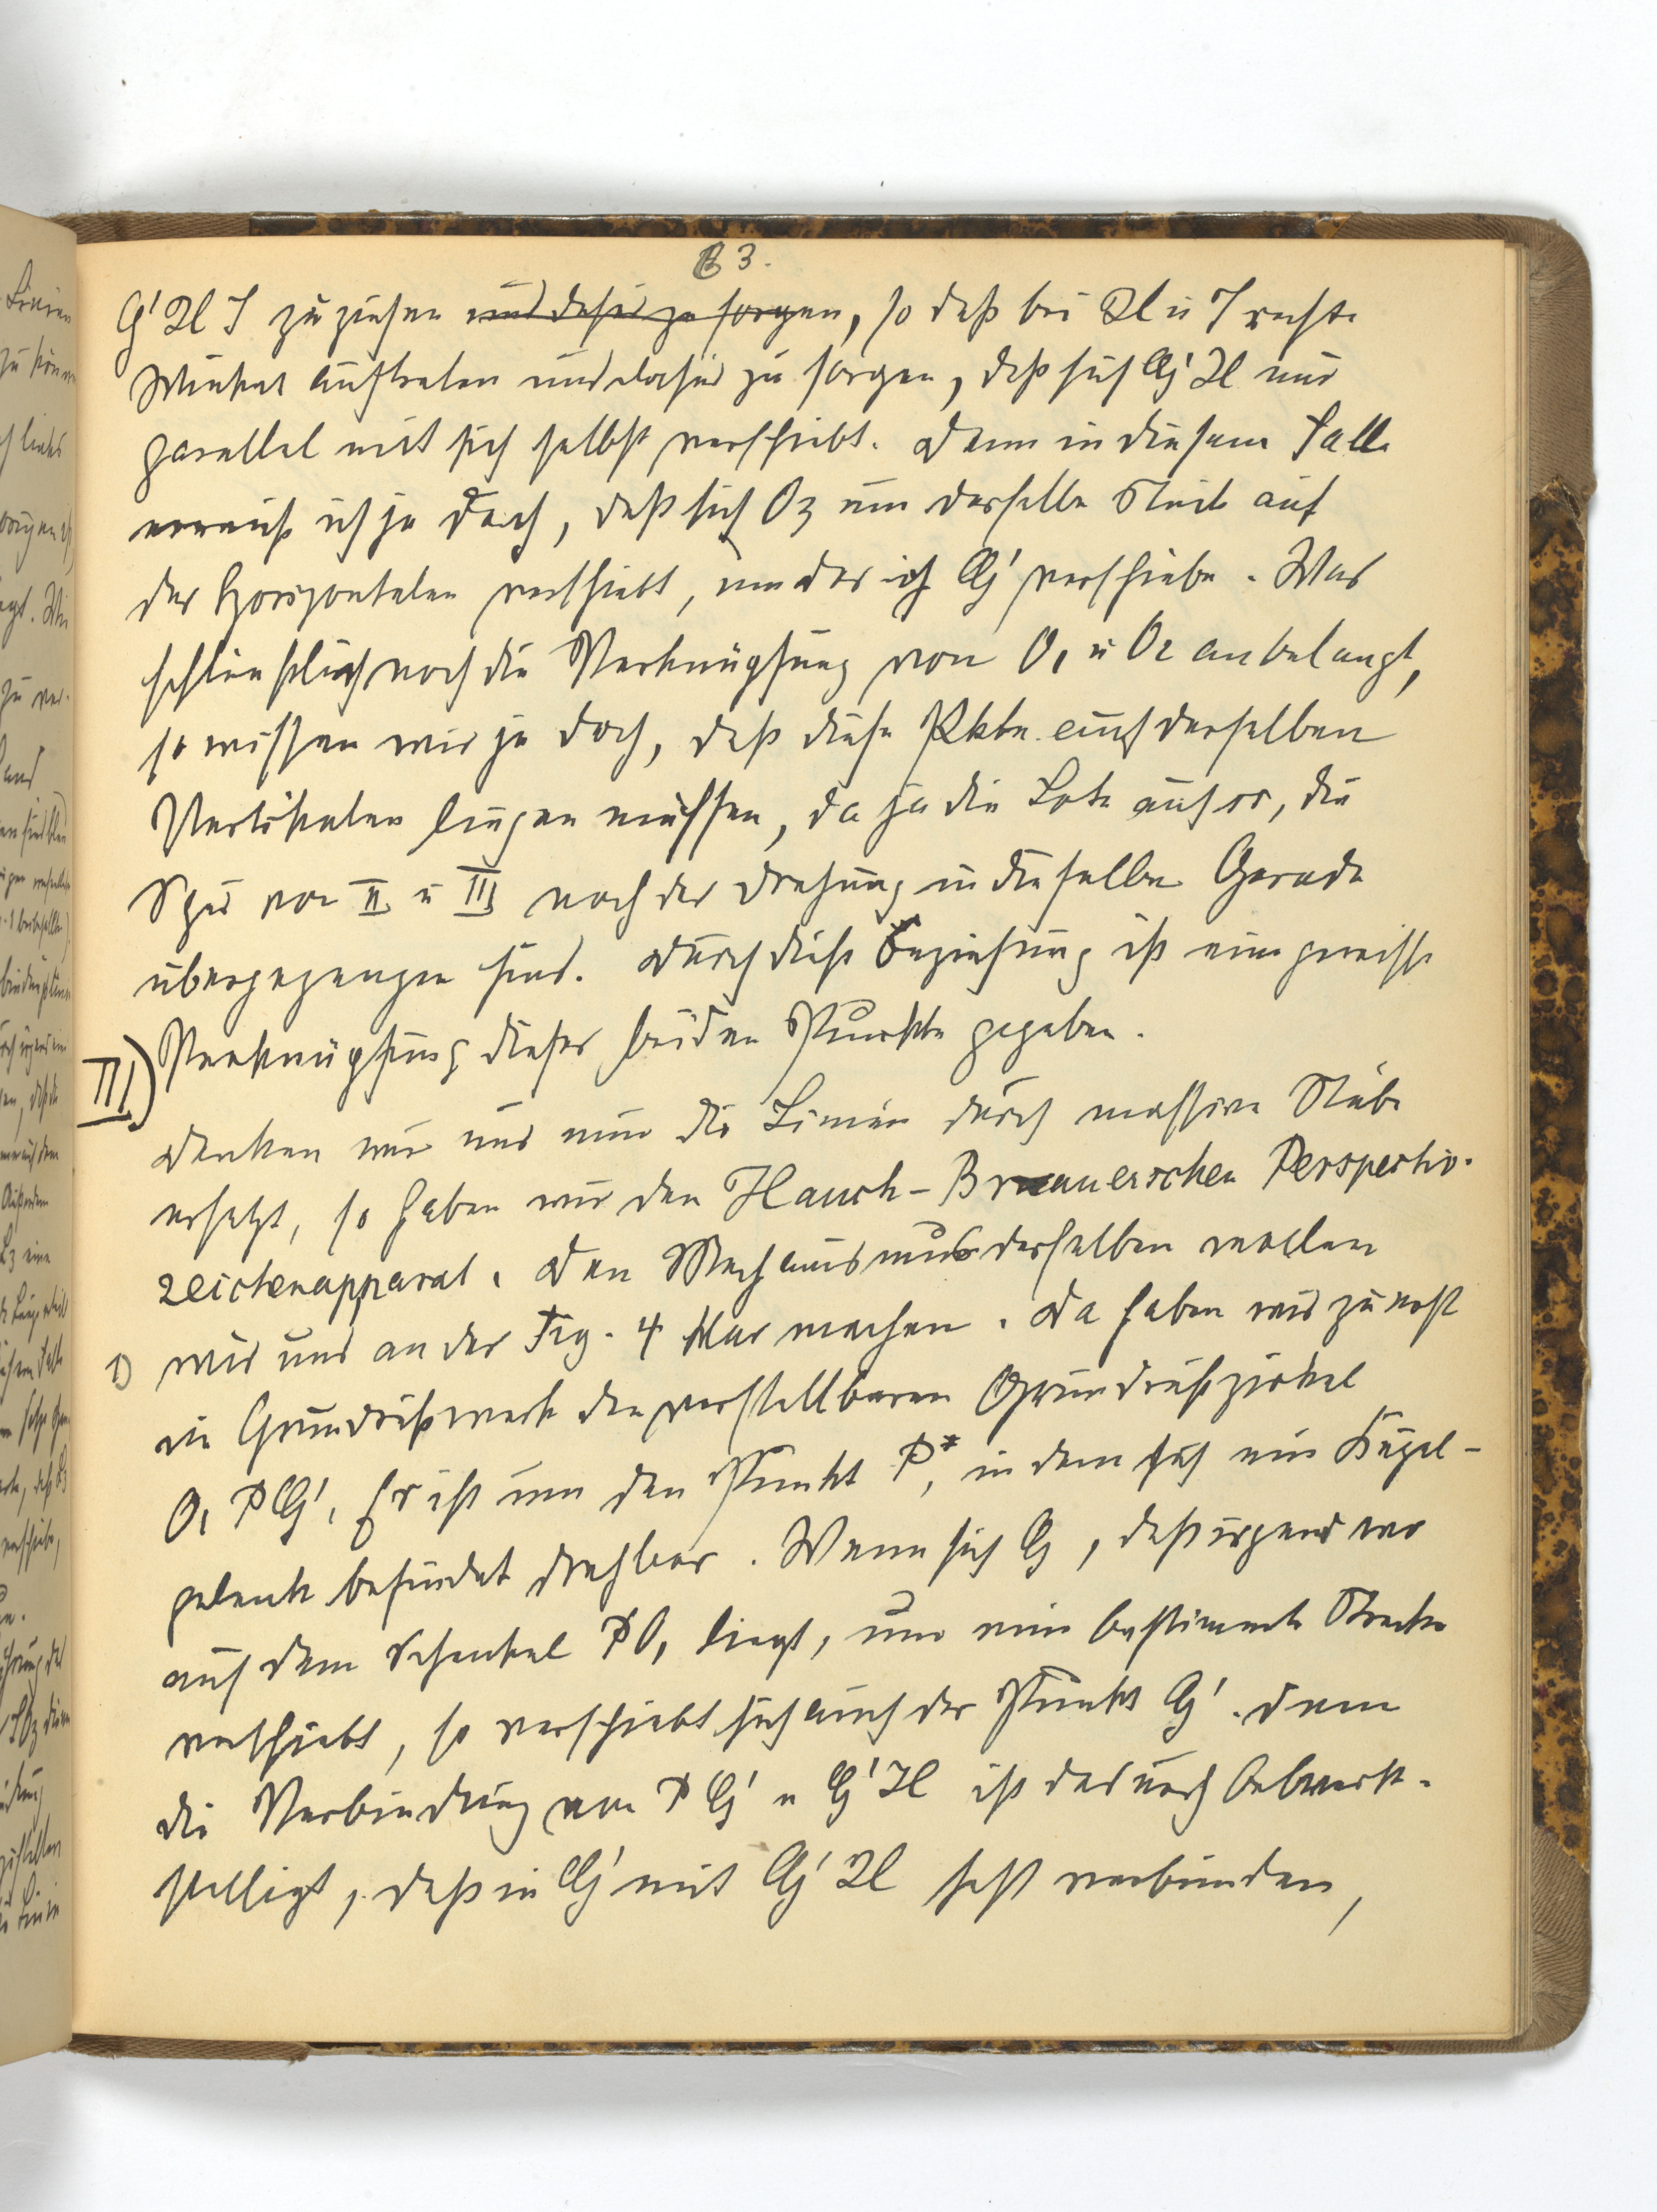 83.
G' H J zu ziehen und dafür zu sorgen, so daß bei H u J rechte
Winkel auftreten und dafür zu sorgen, daß sich G' H nur
parallel mit sich selbst verschiebt. Denn in diesem Falle
erreich ich ja doch, daß sich O3 um dasselbe Stück auf
der Horizontalen verschiebt, um das ich G' verschiebe. Was
schließlich noch die Verknüpfung von O1 u O2 anbelangt,
so wissen wir ja doch, daß diese Pkte. auf derselben
Vertikalen liegen müssen, da ja die Lote auf ss, die
Spur von II u III nach der Drehung in dieselbe Gerade
übergegangen sind. Durch diese Beziehung ist eine gewisse
Verknüpfung dieser beiden Punkte gegeben.
III)
Denken wir uns nun die Linien durch massive Stäbe
ersetzt, so haben wir den Hauck-Brauerschen Perspectiv-
zeichenapparat. Den Mechanismus desselben wollen
1) wir uns an der Fig. 4 klar machen. Da haben wir zuerst
im Grundrißwerk den verstellbaren Grundrißzirkel
O1 P G'. Er ist um den Punkt P*, in dem sich ein Kugel-
gelenk befindet drehbar. Wenn sich G, daß irgend wo
auf dem Schenkel PO1 liegt, um eine bestimmte Strecke
verschiebt, so verschiebt sich auch der Punkt G'. Denn
die Verbindung von P G' u G' H ist dadurch bewerk-
stelligt, daß in G' mit G' H fest verbunden,